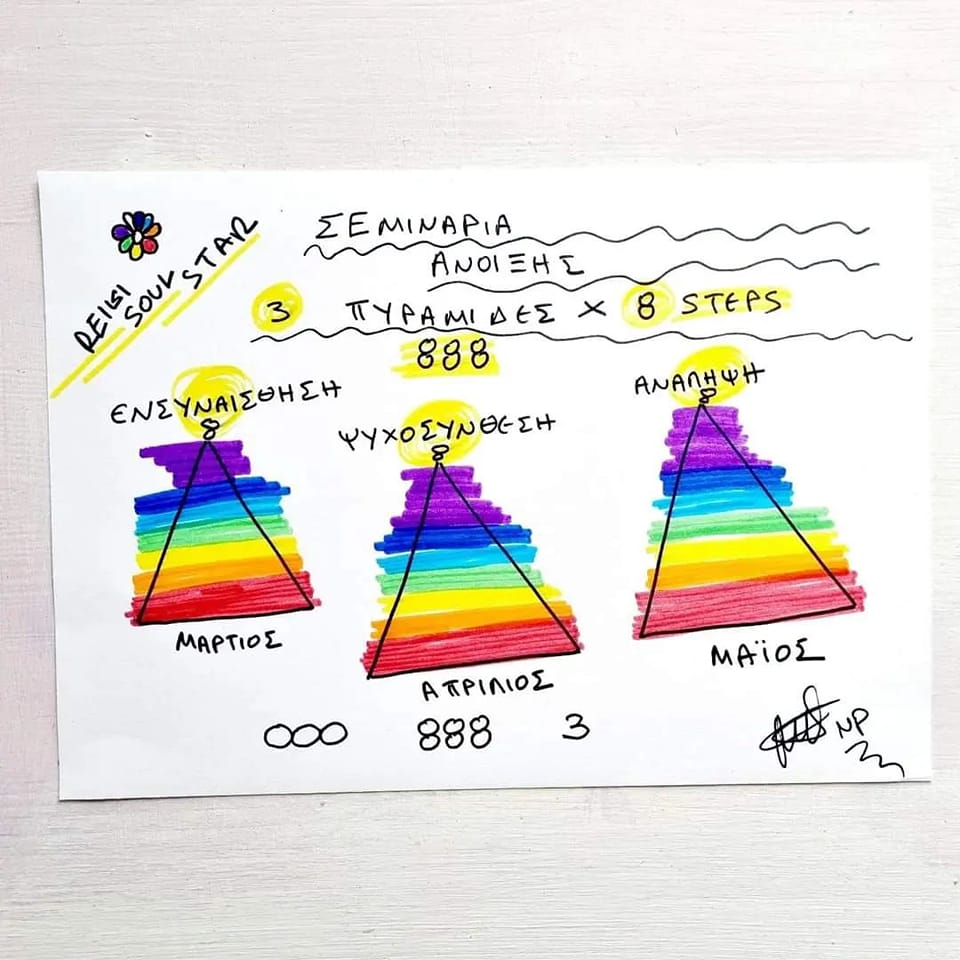 REIKI
SOUL
STAR
ΣΕΜΙΝΑΡΙΑ
ΑΝΟΙΞΗΣ
3 ΠΥΡΑΜΙΔΕΣ X 8 STEPS
888
ΕΝΣΥΝΑΙΣΘΗΣΗ
ΨΥΧΟΣΥΝΘΕΣΗ
ΑΝΑΛΗΨΗ
8
8
8
ΜΑΡΤΙΟΣ
ΑΠΡΙΛΙΟΣ
ΜΑΪΟΣ
000 888 3
NP